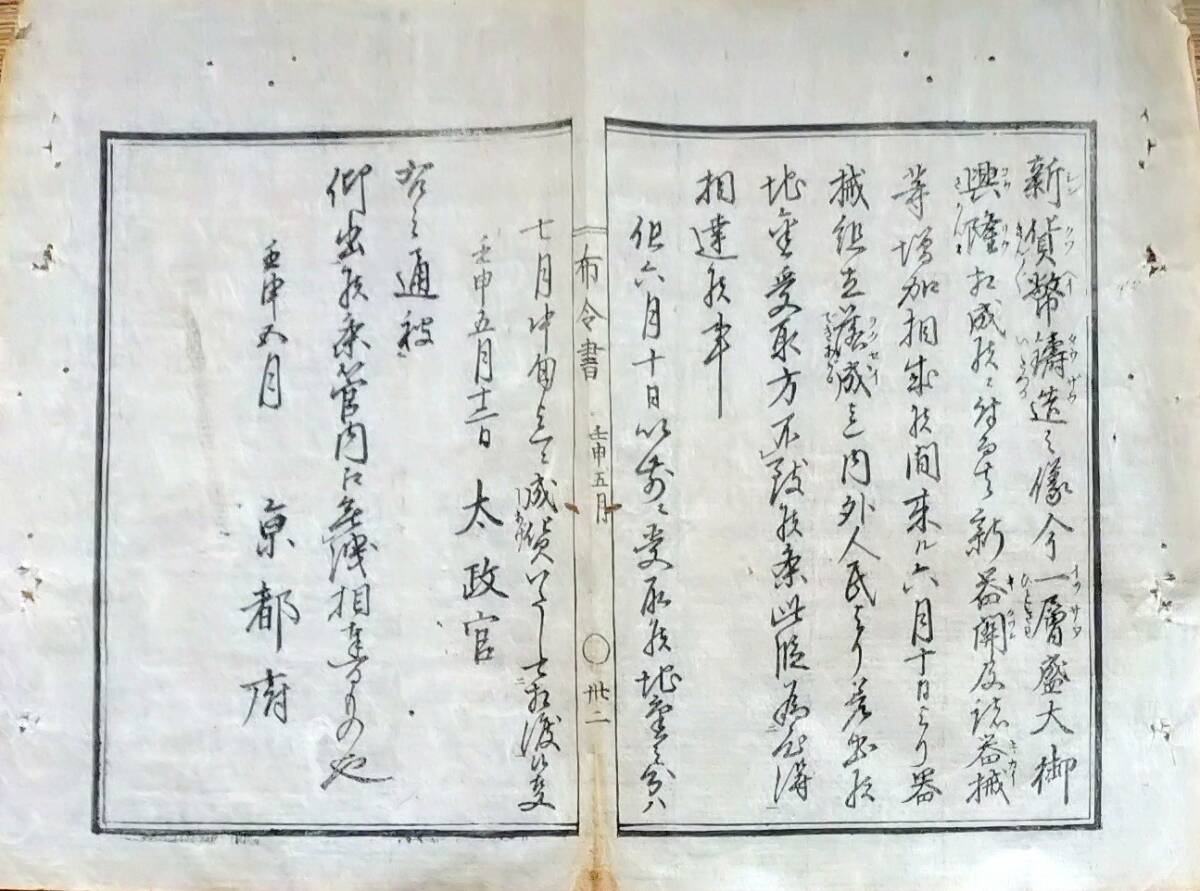 新貨幣鋳造之儀今一層盛大御
興隆相成候ニ付而者新器開及諸器械
等増加相成候間来ル六月十日より器
械組立落成迄内外人民より差出候
地金受取方不致候条此段為心得
相達候事
但六月十日以前ニ受取候地金之分ハ
七月中旬迄ニ成貨いたし相渡候事
壬申五月十二日 太政官
右之通被
仰出候条管内江無洩相達るもの也
壬申五月 京都府
布令書 壬申五月 〇 卅二